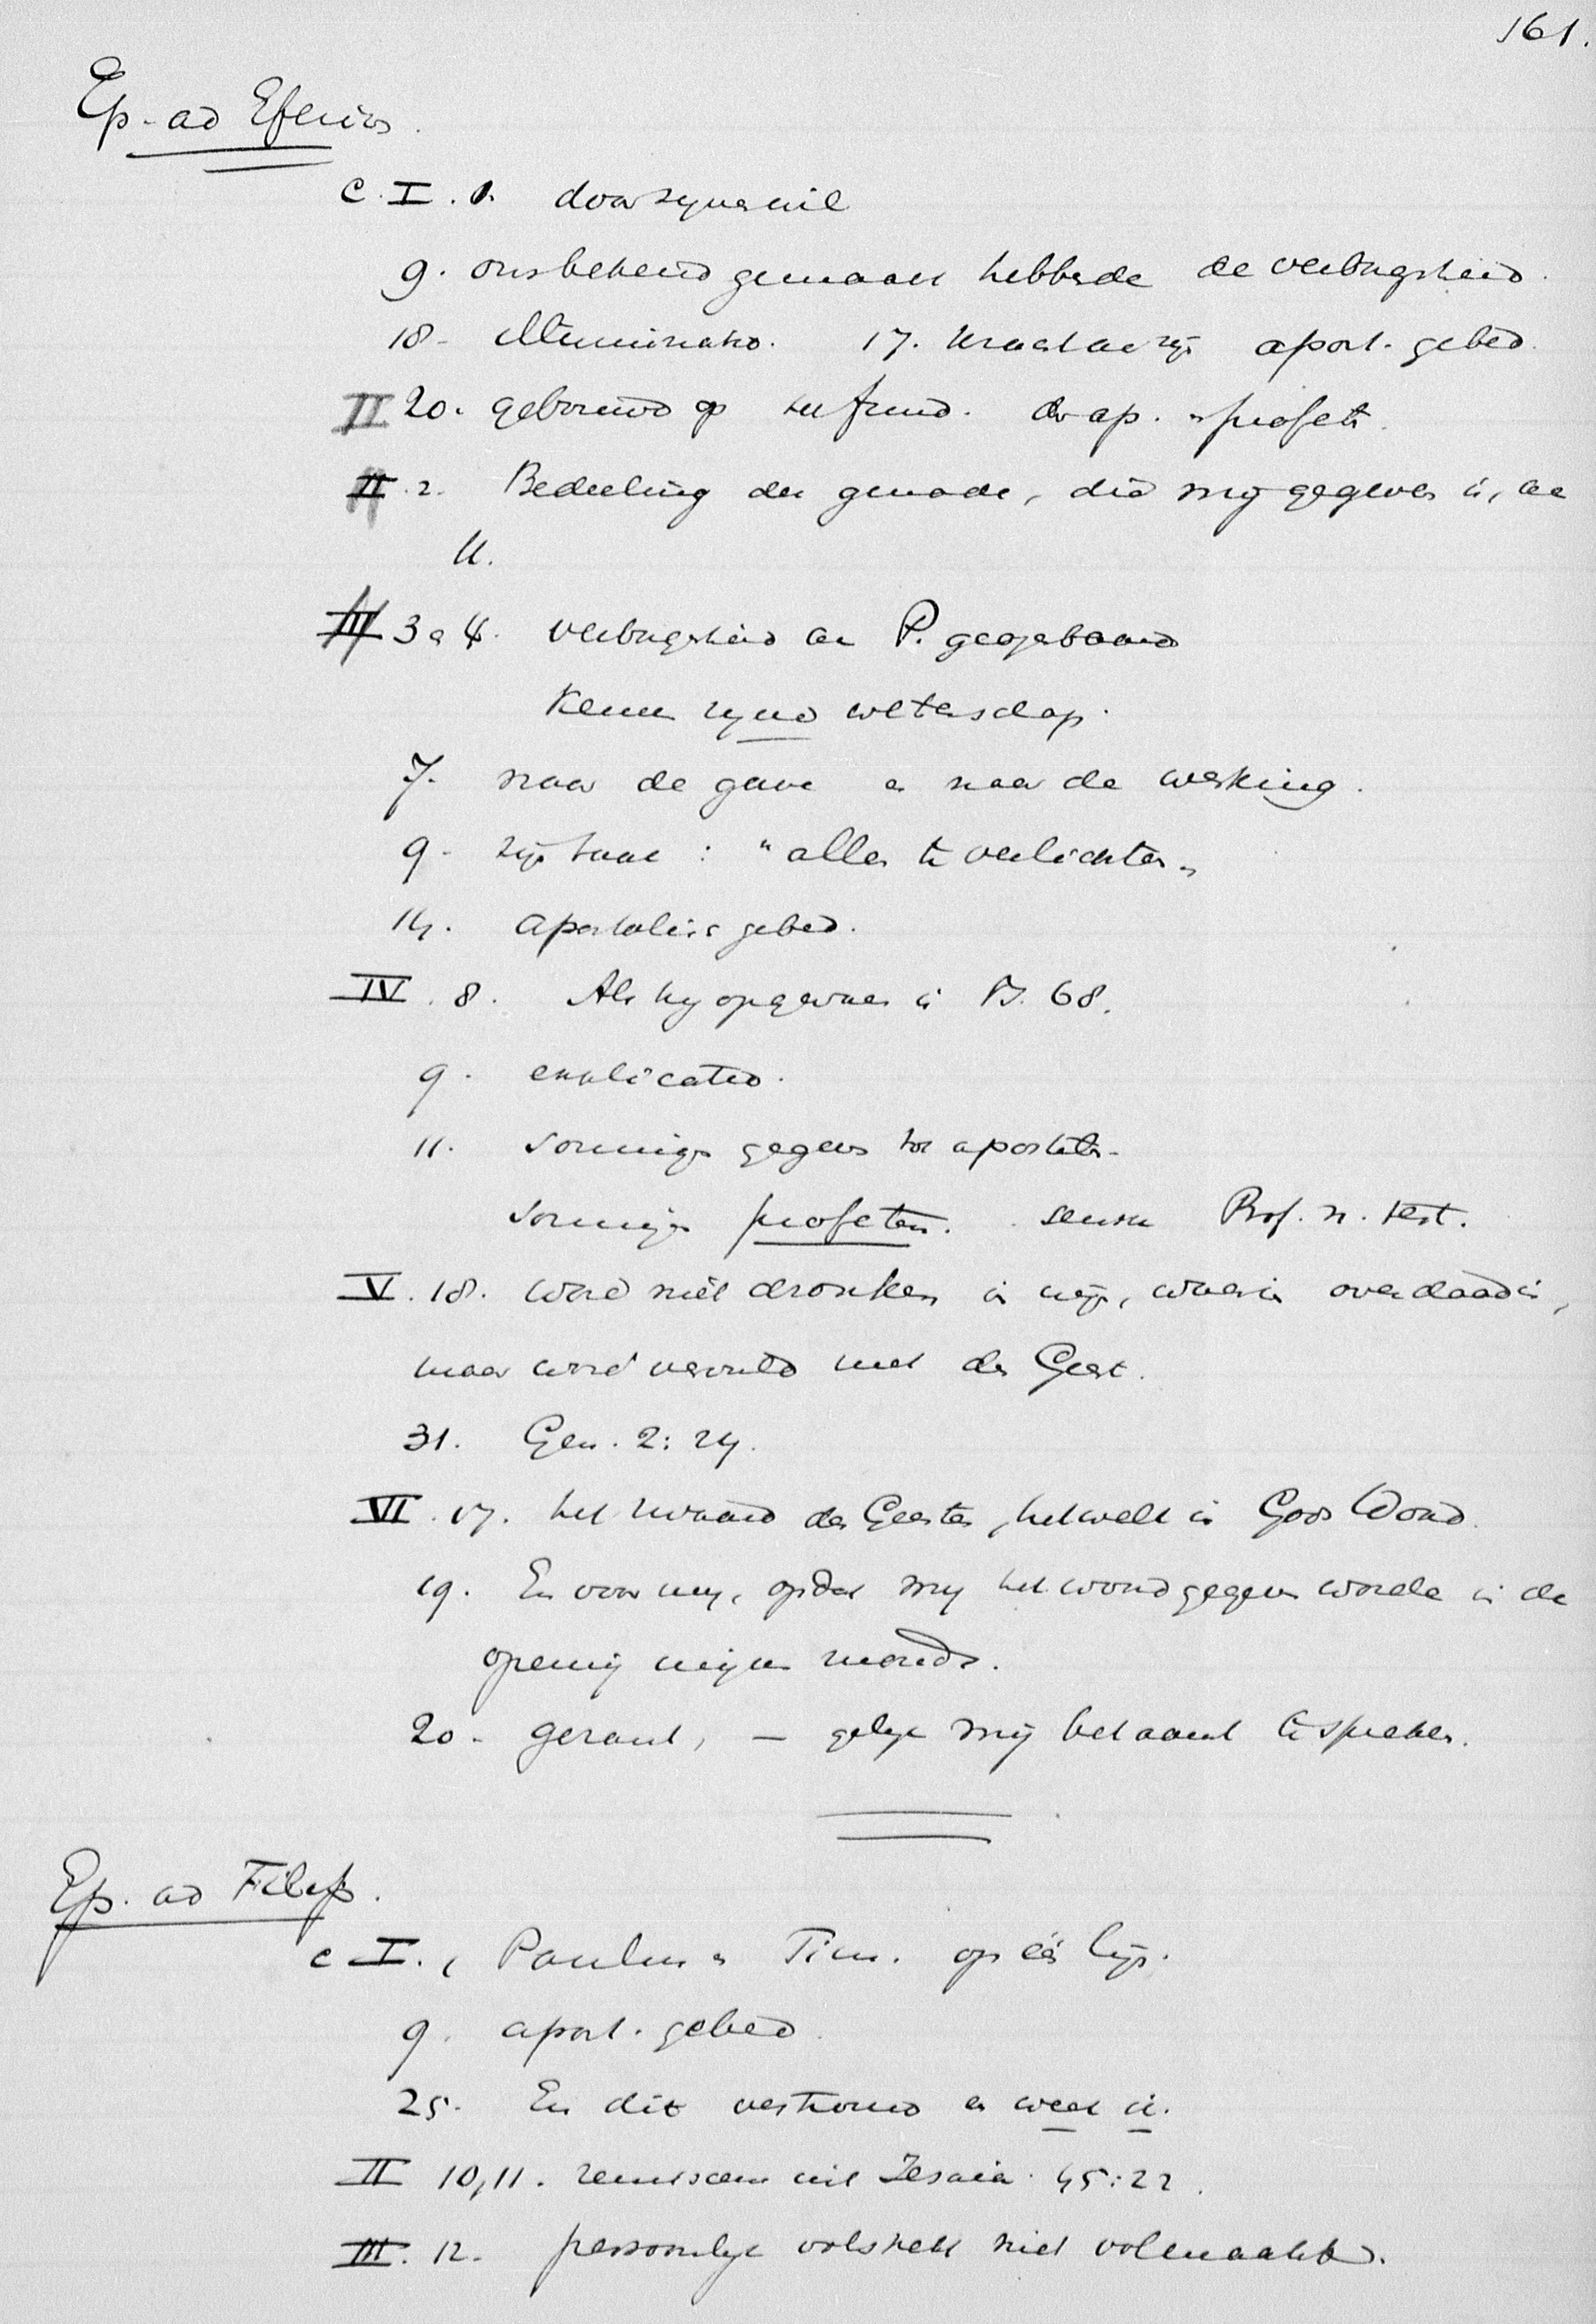 161.
Ep. ad Efesios.
c. I. 1. door zijnen wil
9. ons bekend gemaakt hebbende de verborgenheid.
18. Illuminatio. 17. Kracht v. zijn apost. gebed.
II 20. gebouwd op het fund. der ap. en profeten.
2. Bedeeling der genade, die mij gegeven is, aan
U.
III 3 & 4. verborgenheid aan P. geopenbaard
Kenn zijnd wetenschap.
7. naar de gave en naar de werking.
9. zijn taak: "allen te verlichten"
14. apostolisch gebed.
IV. 8. Als hij opgevaren is Ps. 68.
9. explicatio.
11. Sommigen gegeven tot apostelen.
Sommigen profeten. sensu Prof. N. Test.
V. 18. word niet dronken in wijn, waarin overdaad is,
maar word vervuld met den Geest.
31. Gen. 2:24.
VI. 17. het zwaard des Geestes, hetwelk is Gods Woord.
19. En voor mij, opdat mij het woord gegeven worde in de
opening mijns monds.
20. gezant, — gelijk mij betaamt te spreken.
Ep. ad Filipp.
c I. 1 Paulus en Tim. op één lijn.
9. apost. gebed.
25. En dit vertrouw en weet ik.
II 10,11. reminiscens uit Jesaia 45:22.
III. 12. persoonlijk volstrekt niet volmaakt.